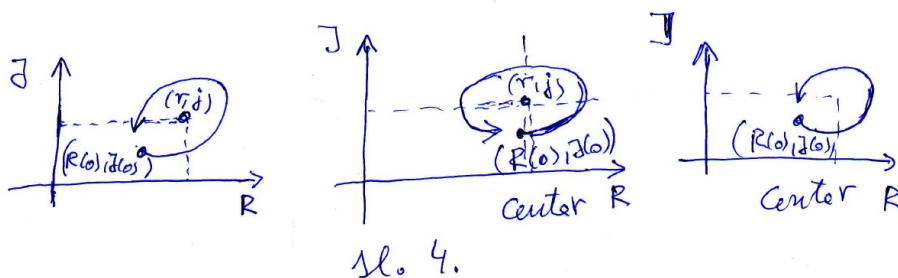 J
(r, j)
(R(0), J(0))
R
J
(r, j)
(R(0), J(0))
Center R
J
(R(0), J(0)
Center R
sl. 4.